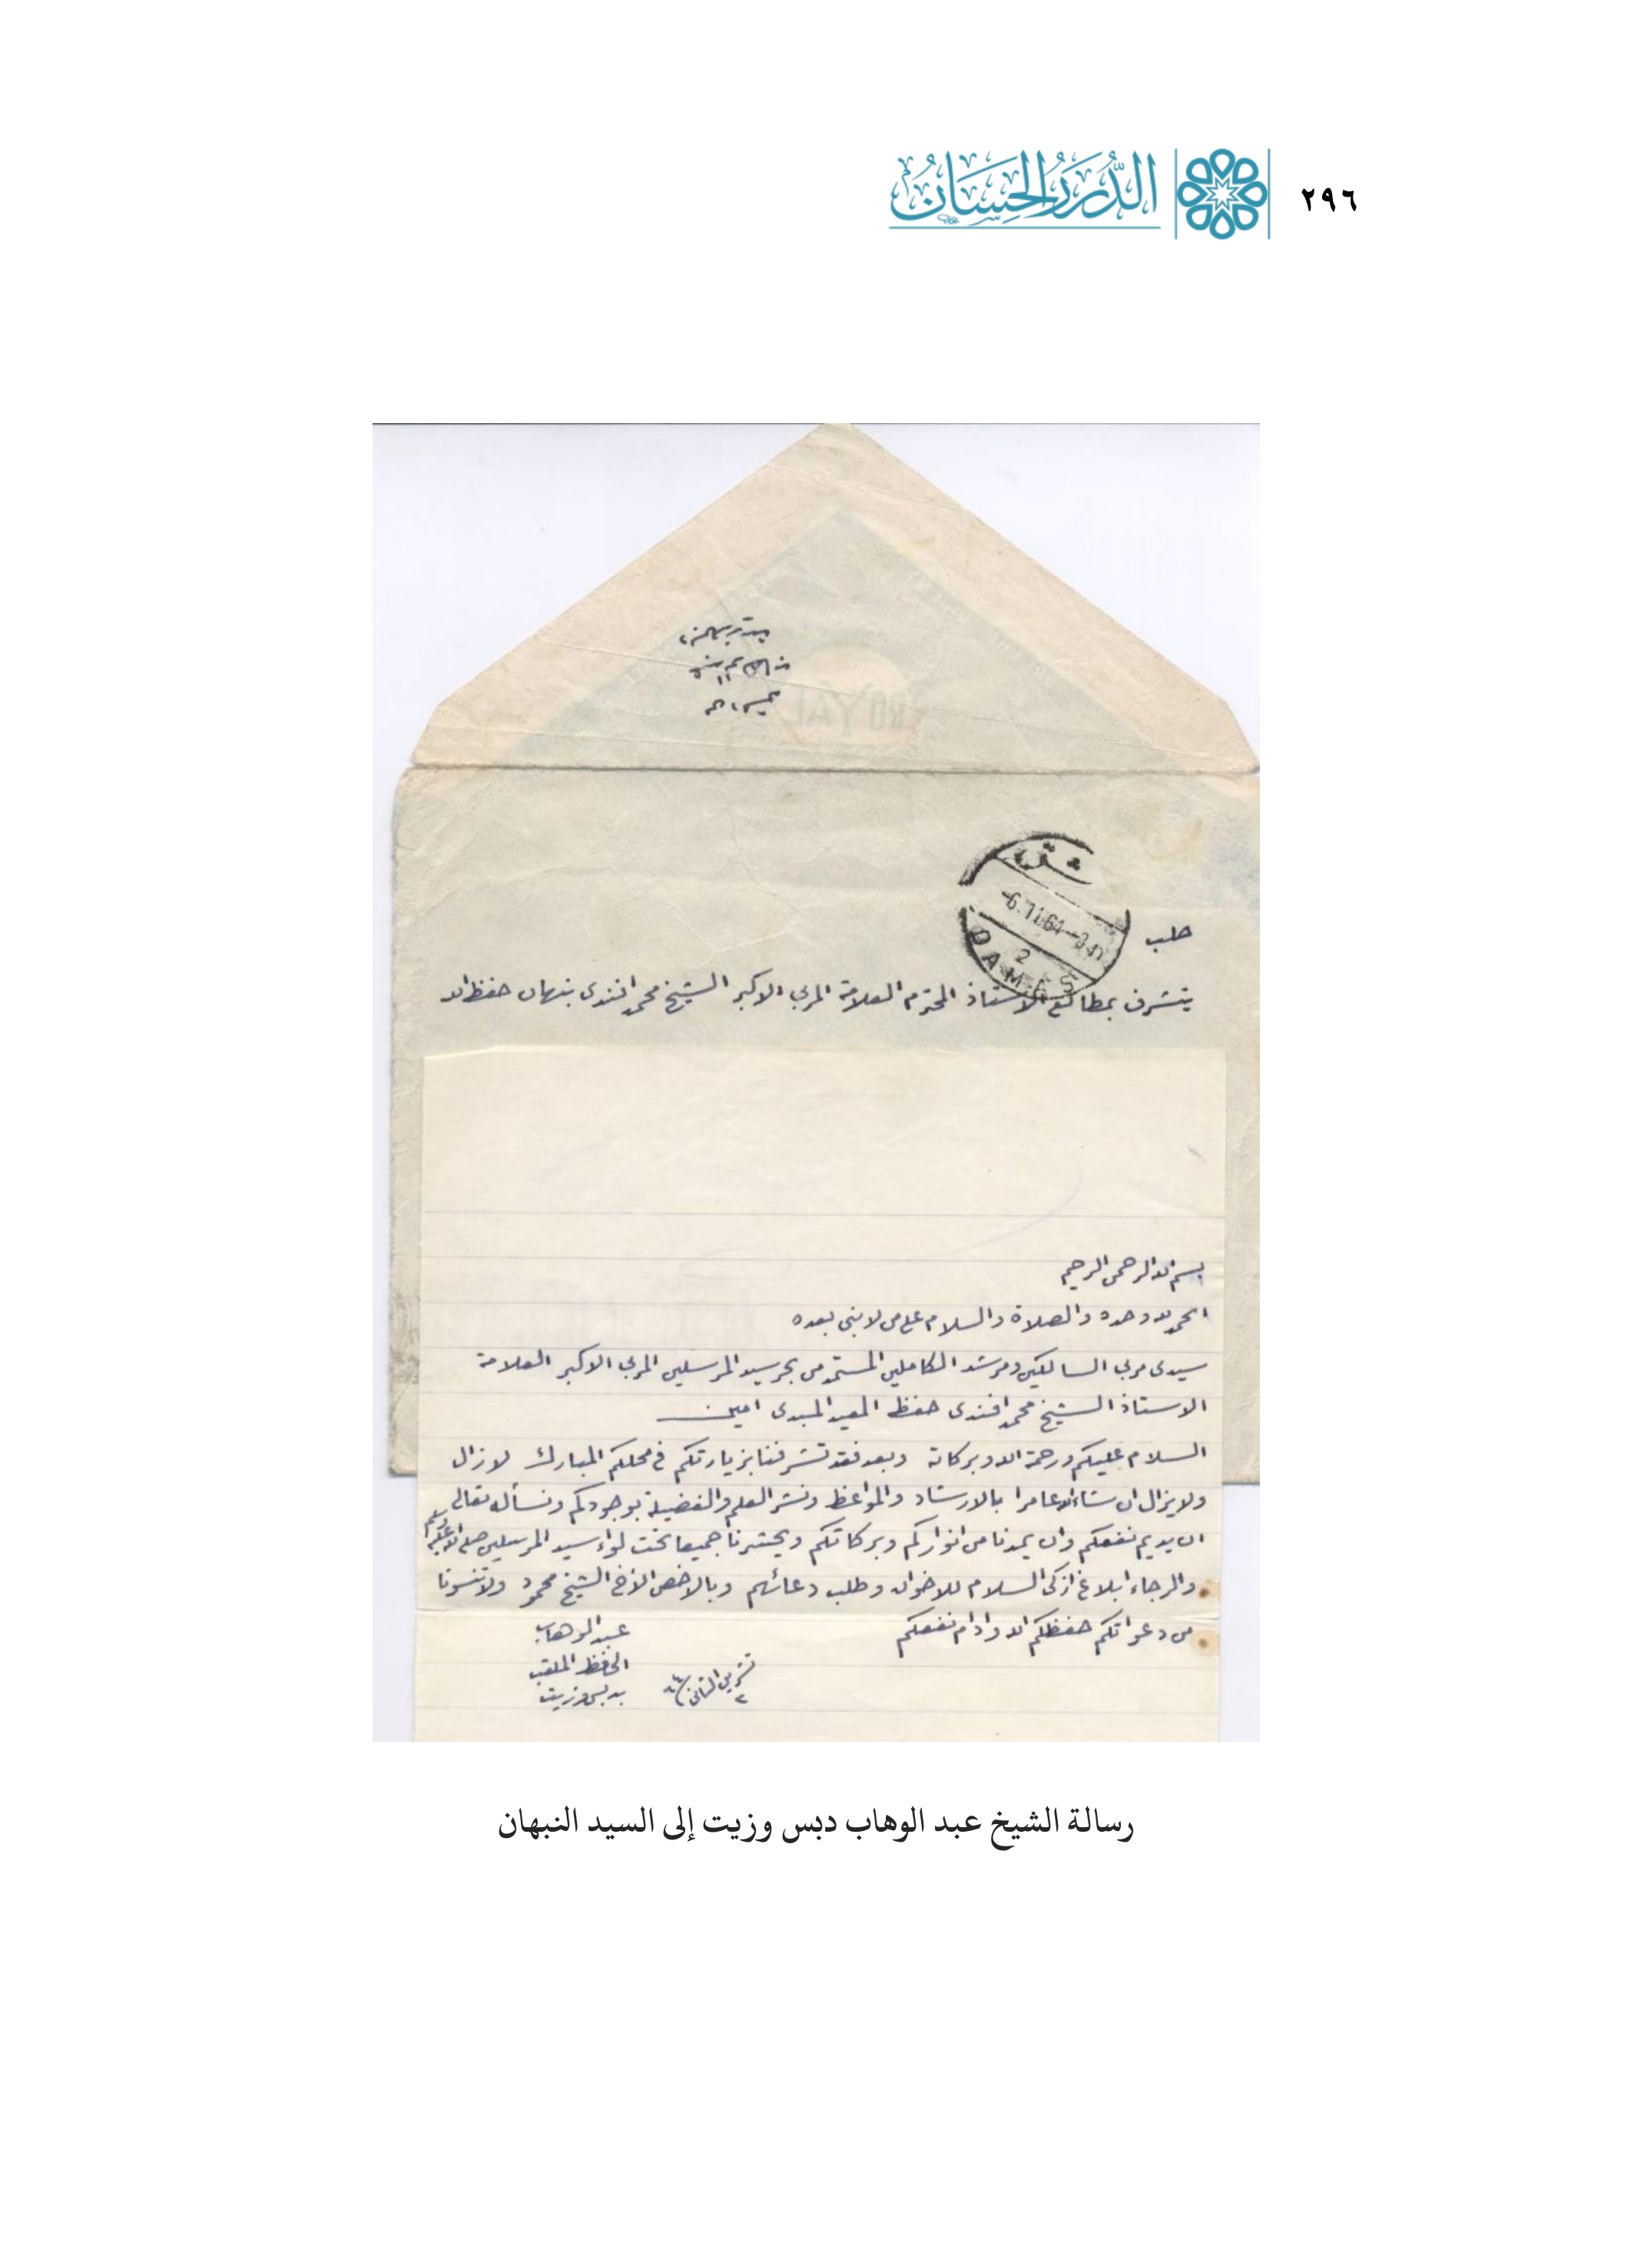 ٢٩٦
الدُّرَرُ الحِسَانُ
دمشق
6.11.61
2
DAMAS
حلب
يتشرف بمطالع الاستاذ المحترم العلامة المربي الاكبر الشيخ محمد افندى بنهان حفظ الله
بسم الله الرحمن الرحيم
الحمد لله وحده والصلاة والسلام على من لا نبى بعده
سيدى مربى السالكين ومرشد الكاملين المستمد من بحر سيد المرسلين المربى الاكبر العلامة
الاستاذ الشيخ محمد افندى حفظ المعيد المبدى امين
السلام عليكم ورحمة الله وبركاته وبعد فقد تشرفنا بزيارتكم فى محلكم المبارك لازال
ولا يزال ان شاء الله عامرا بالارشاد والمواعظ ونشر العلم والفضيلة بوجودكم ونسأله تعالى
ان يديم نفعكم وان يمدنا من انواركم وبركاتكم ويحشرنا جميعا تحت لواء سيد المرسلين صلى الله عليه وسلم
والرجاء ابلاغ ازكى السلام للاخوان وطلب دعائهم وبالاخص الأخ الشيخ محمود ولا تنسونا
من دعواتكم حفظكم الله وادام نفعكم
عبد الوهاب
الحافظ الملقب
بدبس وزيت
تشرين الثانى
٢
رسالة الشيخ عبد الوهاب دبس وزيت إلى السيد النبهان